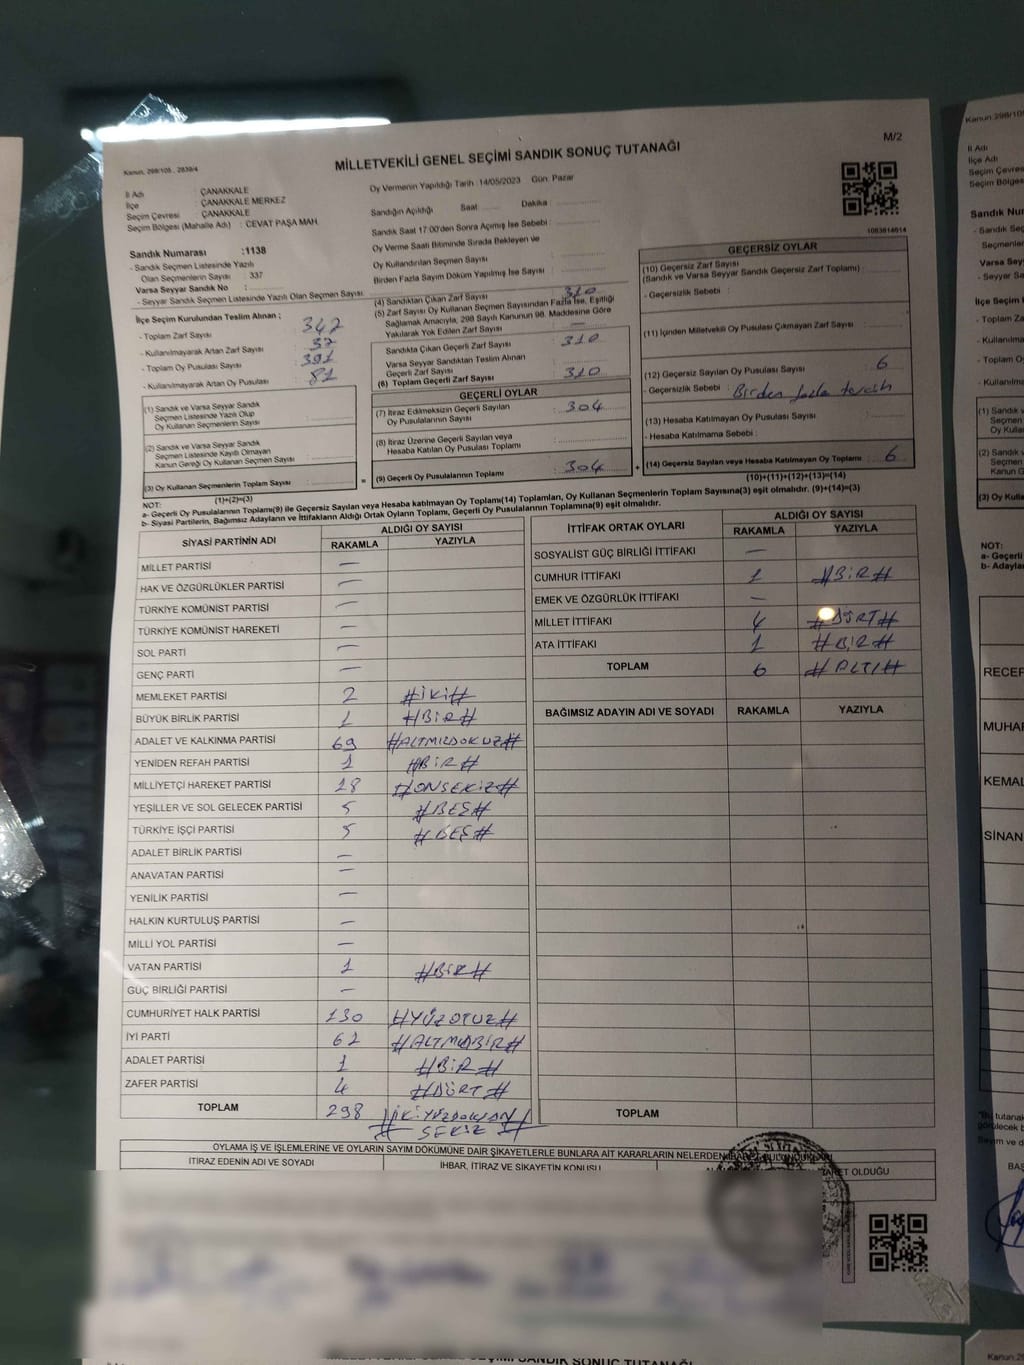 M/2
Kanun. 298/105 , 2839/4
MİLLETVEKİLİ GENEL SEÇİMİ SANDIK SONUÇ TUTANAĞI
İl Adı : ÇANAKKALE
İlçe : ÇANAKKALE MERKEZ
Seçim Çevresi : ÇANAKKALE
Seçim Bölgesi (Mahalle Adı) : CEVAT PAŞA MAH.
Sandık Numarası :1138
- Sandık Seçmen Listesinde Yazılı
Olan Seçmenlerin Sayısı : 337
Varsa Seyyar Sandık No :
- Seyyar Sandık Seçmen Listesinde Yazılı Olan Seçmen Sayısı:
Oy Vermenin Yapıldığı Tarih : 14/05/2023 Gün: Pazar
Sandığın Açıldığı Saat : Dakika :
Sandık Saat 17:00'den Sonra Açımış İse Sebebi :
Oy Verme Saati Bitiminde Sırada Bekleyen ve
Oy Kullandırılan Seçmen Sayısı :
Birden Fazla Sayım Döküm Yapılmış İse Sayısı :
1083614614
İlçe Seçim Kurulundan Teslim Alınan ;
- Toplam Zarf Sayısı : 347
- Kullanılmayarak Artan Zarf Sayısı : 37
- Toplam Oy Pusulası Sayısı : 391
- Kullanılmayarak Artan Oy Pusulası : 81
(1) Sandık ve Varsa Seyyar Sandık
Seçmen Listesinde Yazılı Olup
Oy Kullanan Seçmenlerin Sayısı :
(2) Sandık ve Varsa Seyyar Sandık
Seçmen Listesinde Kayıtlı Olmayan
Kanun Gereği Oy Kullanan Seçmen Sayısı :
(3) Oy Kullanan Seçmenlerin Toplam Sayısı :
(1)+(2)=(3)
(4) Sandıktan Çıkan Zarf Sayısı : 310
(5) Zarf Sayısı Oy Kullanan Seçmen Sayısından Fazla İse, Eşitliği
Sağlamak Amacıyla, 298 Sayılı Kanunun 98. Maddesine Göre
Yakılarak Yok Edilen Zarf Sayısı : —
Sandıkta Çıkan Geçerli Zarf Sayısı : 310
Varsa Seyyar Sandıktan Teslim Alınan
Geçerli Zarf Sayısı :
(6) Toplam Geçerli Zarf Sayısı : 310
GEÇERLİ OYLAR
(7) İtiraz Edilmeksizin Geçerli Sayılan
Oy Pusulalarının Sayısı : 304
(8) İtiraz Üzerine Geçerli Sayılan veya
Hesaba Katılan Oy Pusulası Toplamı :
(9) Geçerli Oy Pusulalarının Toplamı : 304
GEÇERSİZ OYLAR
(10) Geçersiz Zarf Sayısı
(Sandık ve Varsa Seyyar Sandık Geçersiz Zarf Toplamı) :
- Geçersizlik Sebebi :
(11) İçinden Milletvekili Oy Pusulası Çıkmayan Zarf Sayısı :
(12) Geçersiz Sayılan Oy Pusulası Sayısı : 6
- Geçersizlik Sebebi : Birden fazla tercih
(13) Hesaba Katılmayan Oy Pusulası Sayısı :
- Hesaba Katılmama Sebebi :
(14) Geçersiz Sayılan veya Hesaba Katılmayan Oy Toplamı : 6
(10)+(11)+(12)+(13)=(14)
NOT:
a- Geçerli Oy Pusulalarının Toplamı(9) ile Geçersiz Sayılan veya Hesaba katılmayan Oy Toplamı(14) Toplamları, Oy Kullanan Seçmenlerin Toplam Sayısına(3) eşit olmalıdır. (9)+(14)=(3)
b- Siyasi Partilerin, Bağımsız Adayların ve İttifakların Aldığı Ortak Oyların Toplamı, Geçerli Oy Pusulalarının Toplamına(9) eşit olmalıdır.
SİYASİ PARTİNİN ADI ALDIĞI OY SAYISI
RAKAMLA YAZIYLA
MİLLET PARTİSİ —
HAK VE ÖZGÜRLÜKLER PARTİSİ —
TÜRKİYE KOMÜNİST PARTİSİ —
TÜRKİYE KOMÜNİST HAREKETİ —
SOL PARTİ —
GENÇ PARTİ —
MEMLEKET PARTİSİ 2 #İKİ#
BÜYÜK BİRLİK PARTİSİ 1 #BİR#
ADALET VE KALKINMA PARTİSİ 69 #ALTMIŞDOKUZ#
YENİDEN REFAH PARTİSİ 1 #BİR#
MİLLİYETÇİ HAREKET PARTİSİ 18 #ONSEKİZ#
YEŞİLLER VE SOL GELECEK PARTİSİ 5 #BEŞ#
TÜRKİYE İŞÇİ PARTİSİ 5 #BEŞ#
ADALET BİRLİK PARTİSİ —
ANAVATAN PARTİSİ —
YENİLİK PARTİSİ —
HALKIN KURTULUŞ PARTİSİ —
MİLLİ YOL PARTİSİ —
VATAN PARTİSİ 1 #BİR#
GÜÇ BİRLİĞİ PARTİSİ —
CUMHURİYET HALK PARTİSİ 130 #YÜZOTUZ#
İYİ PARTİ
ADALET PARTİSİ 1 #BİR#
ZAFER PARTİSİ 4 #DÖRT#
TOPLAM 298 #İKİYÜZDOKSAN
SEKİZ#
İTTİFAK ORTAK OYLARI ALDIĞI OY SAYISI
RAKAMLA YAZIYLA
SOSYALİST GÜÇ BİRLİĞİ İTTİFAKI —
CUMHUR İTTİFAKI 1 #BİR#
EMEK VE ÖZGÜRLÜK İTTİFAKI —
MİLLET İTTİFAKI 4 #DÖRT#
ATA İTTİFAKI 1 #BİR#
TOPLAM 6 #ALTI#
BAĞIMSIZ ADAYIN ADI VE SOYADI RAKAMLA YAZIYLA
TOPLAM
OYLAMA İŞ VE İŞLEMLERİNE VE OYLARIN SAYIM DÖKÜMÜNE DAİR ŞİKAYETLERLE BUNLARA AİT KARARLARIN NELERDEN
İTİRAZ EDENİN ADI VE SOYADI İHBAR, İTİRAZ VE ŞİKAYETİN KONUSU OLDUĞU
Kanun.298/105
İl Adı
İlçe Adı
Seçim Çevresi
Seçim Bölgesi
Sandık Num
- Sandık Seç
Seçmenler
NOT:
RECEP
MUHAR
KEMAL
SİNAN